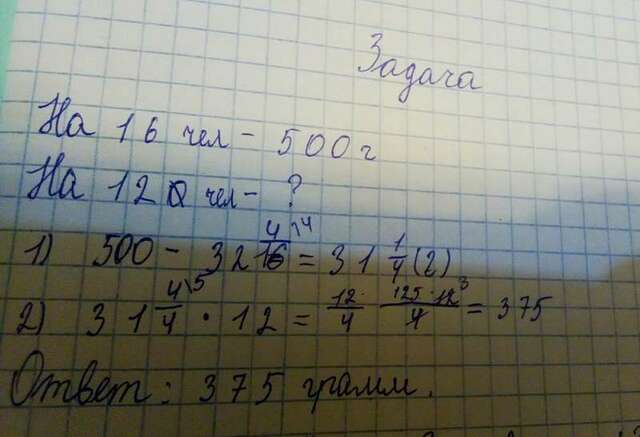 Задача
На 16 чел - 500 г
На 120 чел - ?
1) 500 - 32 4/16 \4 = 31 1/4 (2)
2) 31 4/4 \5 · 12 = 12/4 · 125·12/4 3 = 375
Ответ: 375 грамм.